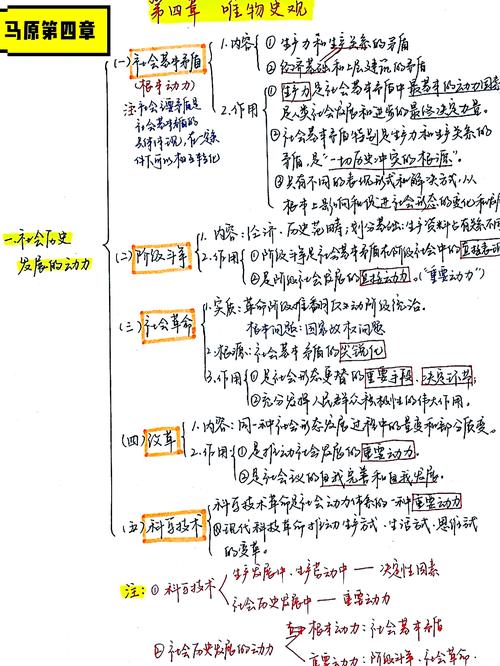 马原第四章
第四章 唯物史观
(一)社会基本矛盾
(根本动力)
注:社会主要矛盾是
社会基本矛盾的
具体体现,在一定条
件下可以相互转化
1.内容
①生产力和生产关系的矛盾
②经济基础和上层建筑的矛盾
2.作用
①生产力是社会基本矛盾中最基本的动力因素
是人类社会发展和进步的最终决定力量。
②社会基本矛盾特别是生产力和生产关系的
矛盾,是“一切历史冲突的根源”。
③具有不同的表现形式和解决方式,从
根本上影响和促进社会形态的变化和
一.社会历史
发展的动力
(二)阶级斗争
1.内容:经济·历史范畴;划分基础:生产资料占有关系不同
2.作用
①阶级斗争是社会基本矛盾在阶级社会中的直接表现
②是阶级社会发展的直接动力。(“重要动力”)
(三)社会革命
1.实质:革命阶级推翻反动阶级统治。
根本问题:国家政权问题
2.根源:社会基本矛盾的尖锐化
3.作用
①是社会形态更替的重要手段、决定环节;
②充分发挥人民群众积极性的伟大作用。
(四)改革
1.内容:同一种社会形态发展过程中的量变和部分质变。
2.作用:
①是推动社会发展的重要动力。
②是社会议的自我完善和自我发展。
(五)科学技术
科学技术革命是社会动力体系的一种重要动力
②现代科技革命推动生产方式·生活方式·思维方式
的变革。
注:①科学技术
生产发展中、生产劳动中——决定性因素
社会历史发展中——重要动力
②社会历史发展的动力
根本动力:社会基本矛盾
重要动力:阶级斗争、社会革命